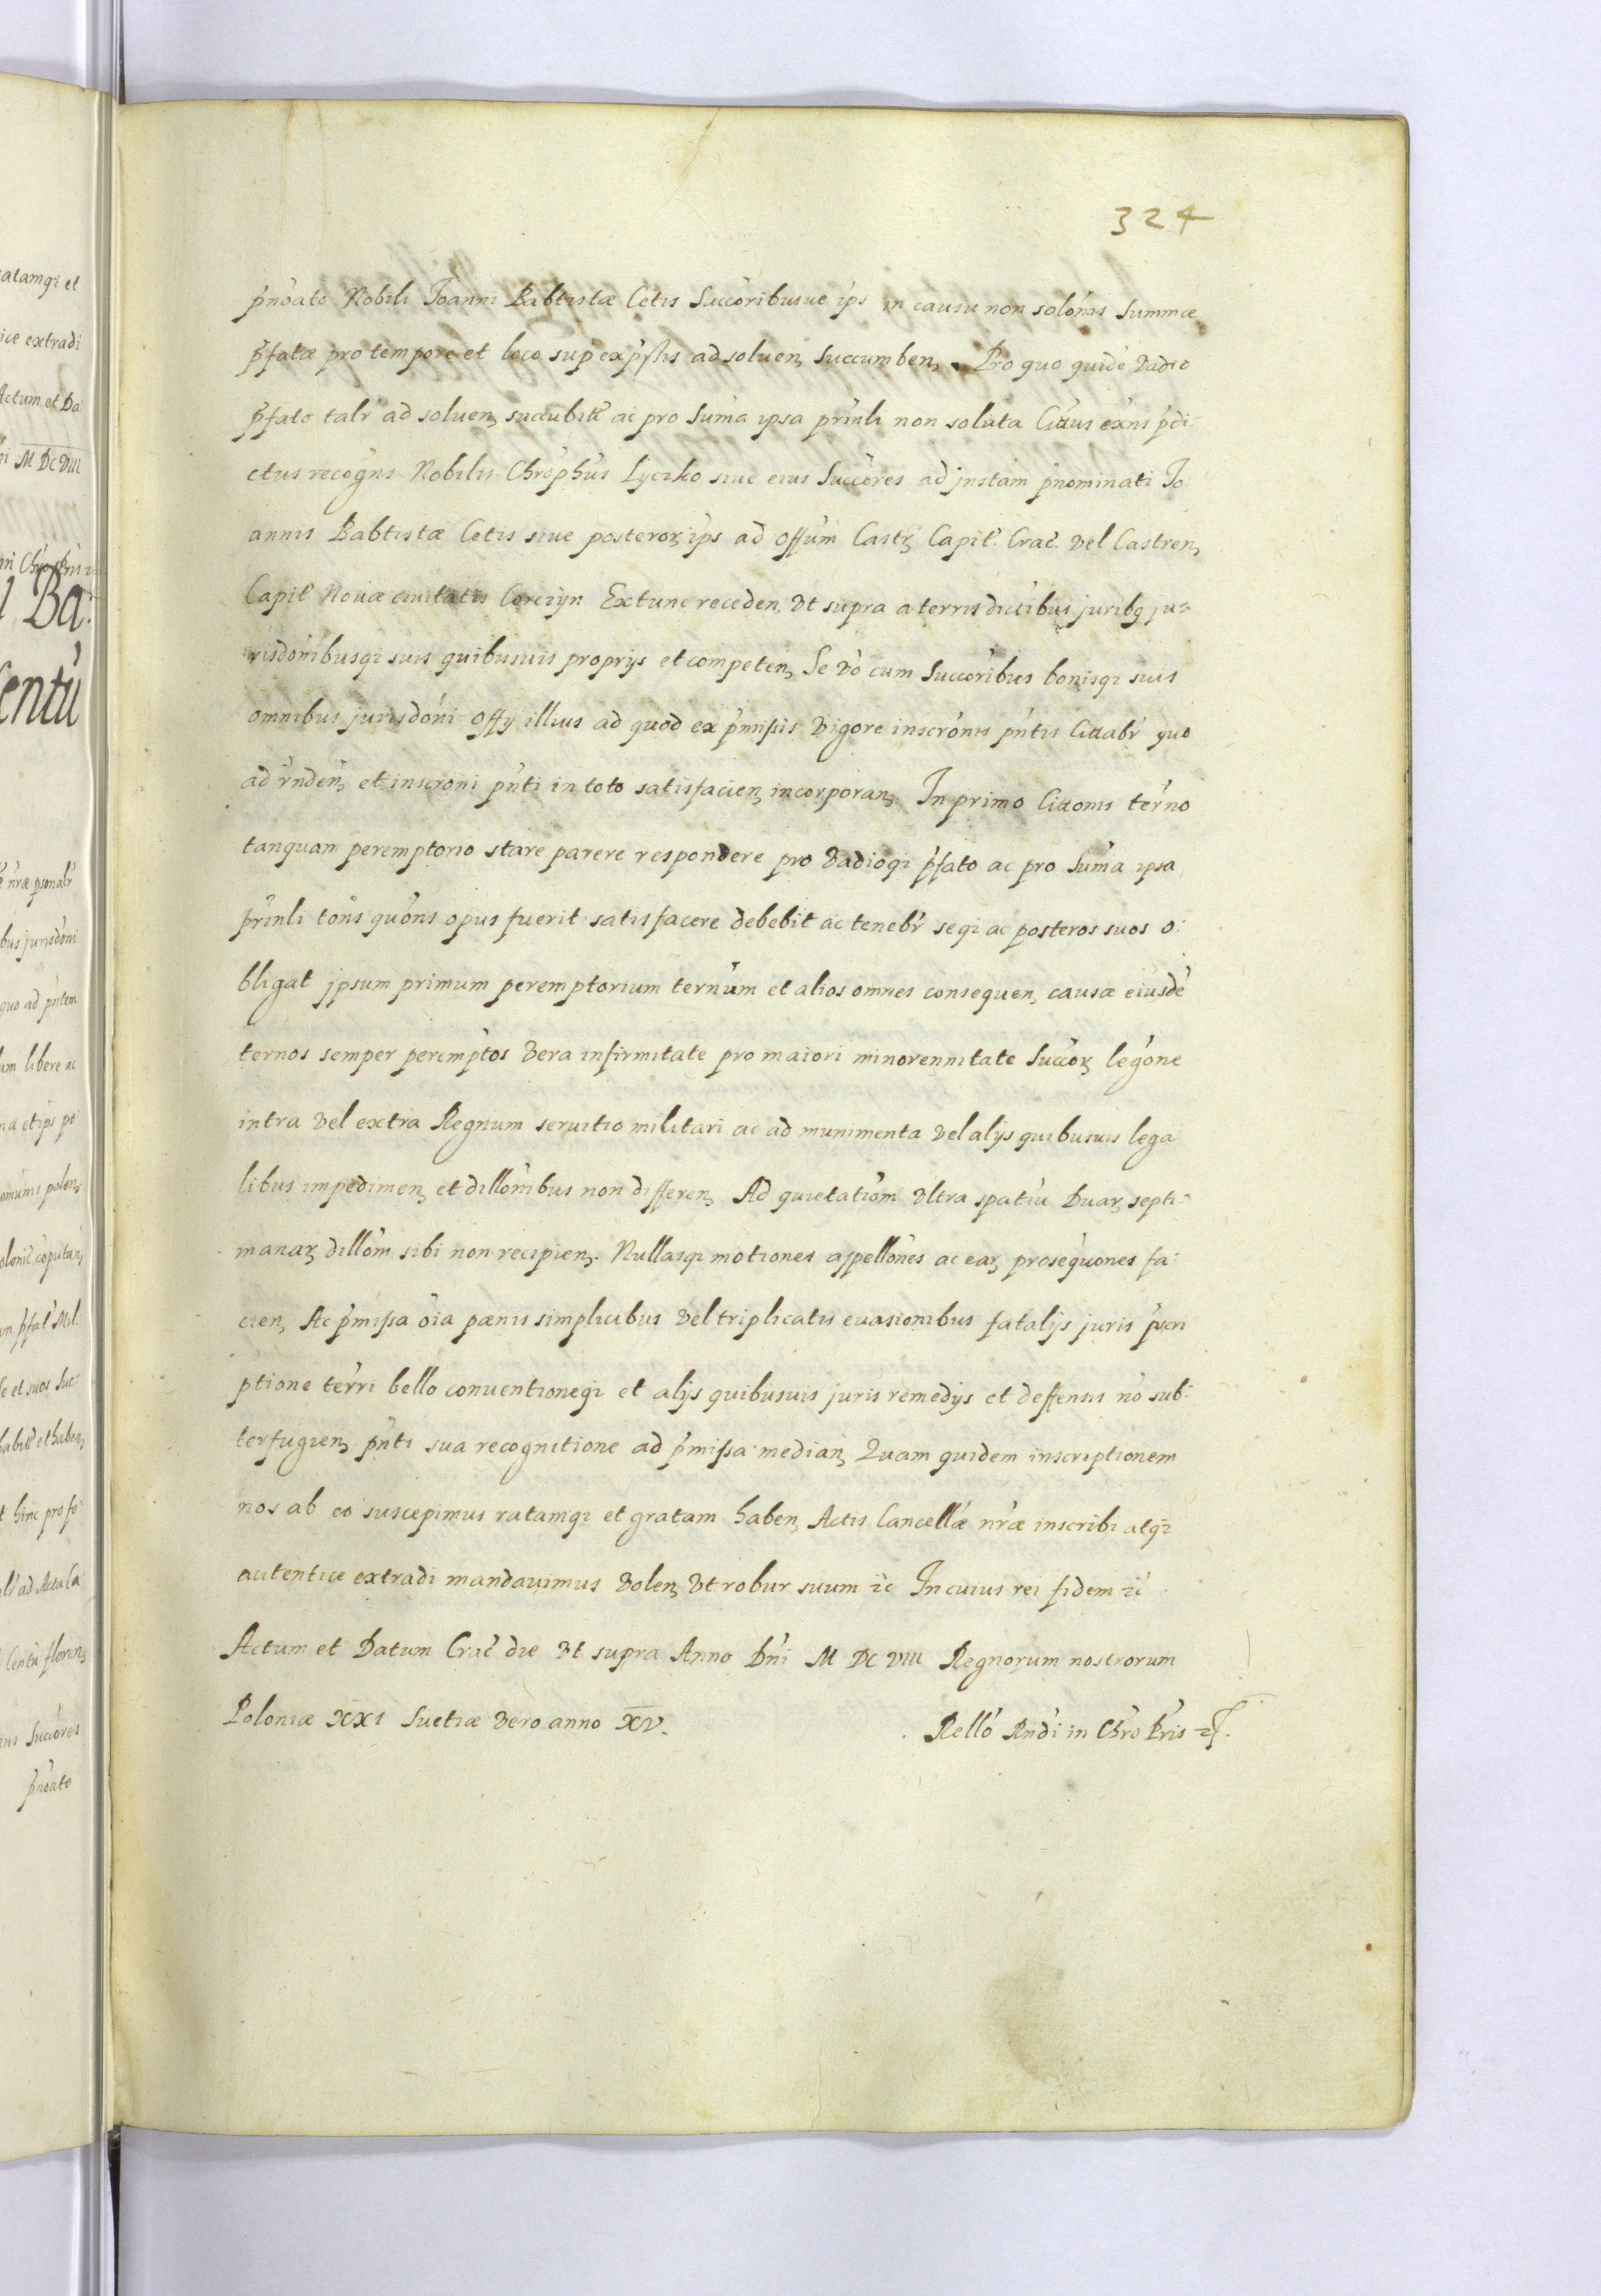 324
p̃noato Nobili Joanni Babtistæ Cetis Succoribusue ips in causu non solonis Summæ
p̃fatæ pro tempore et loco sup expssis ad soluen, Succumben, Pro quo quide Vadio
p̃fato talr ad soluen, succubitt ac pro Suma ipsa prinli non soluta Cittus exns pdi:
ctus recogns Nobilis Chrophus Lyczko siue eius Succores ad jnstam pnominati Jo:
annis Babtistæ Cetis siue posteror ips ad Offum Castr Capit. Crac. Vel Castren,
Capit Nouæ ciuitatis Corczyn Extunc receden Vt supra a terris dictibus juribq ju=
risdonibusqi suis quibusuis proprijs et competen, Se Vo cum Succoribus bonisqi suis
omnibus jurisdoni Offij illius ad quod ex pmissis Vigore inscronis pntis Cittabr quo
ad rnden, et inscroni pnti in toto satisfacien, incorporan, In primo Cittonis terno
tanquam peremptorio stare parere respondere pro Vadioqi pfato ac pro Suma ipsa
prinli tons quons opus fuerit satisfacere debebit ac tenebr seqi ac posteros suos o:
bligat jpsum primum peremptorium ternum et alios omnes consequen, causæ eiusde
ternos semper peremptos Vera infirmitate pro maiori minorennitate Succor legone
intra Vel extra Regnum seruitio militari ac ad munimenta Vel alijs quibusuis lega
libus impedimen, et dillonibus non differen, Ad quietatiom Vltra spatiu Duar septi=
manar dillom sibi non recipien,. Nullasqi motiones appellones ac ear prosequones fa:
cien, Ac pmissa oia pœnis simplicibus Vel triplicatis euasionibus fatalijs juris pscri
ptione terri bello conuentioneqi et alijs quibusuis juris remedijs et deffensis no sub:
terfugien, pnti sua recognitione ad pmissa median, Quam quidem inscriptionem
nos ab eo suscepimus ratamqi et gratam haben, Actis Cancellæ nræ inscribi atqi
autentice extradi mandauimus Volen, Vt robur suum &c In cuius rei fidem &c
Actum et Datum Crac die Vt supra Anno Dni M DC VIII Regnorum nostrorum
Poloniæ XXI Suetiæ Vero anno XV.
Rello Rndi in Chro Pris &